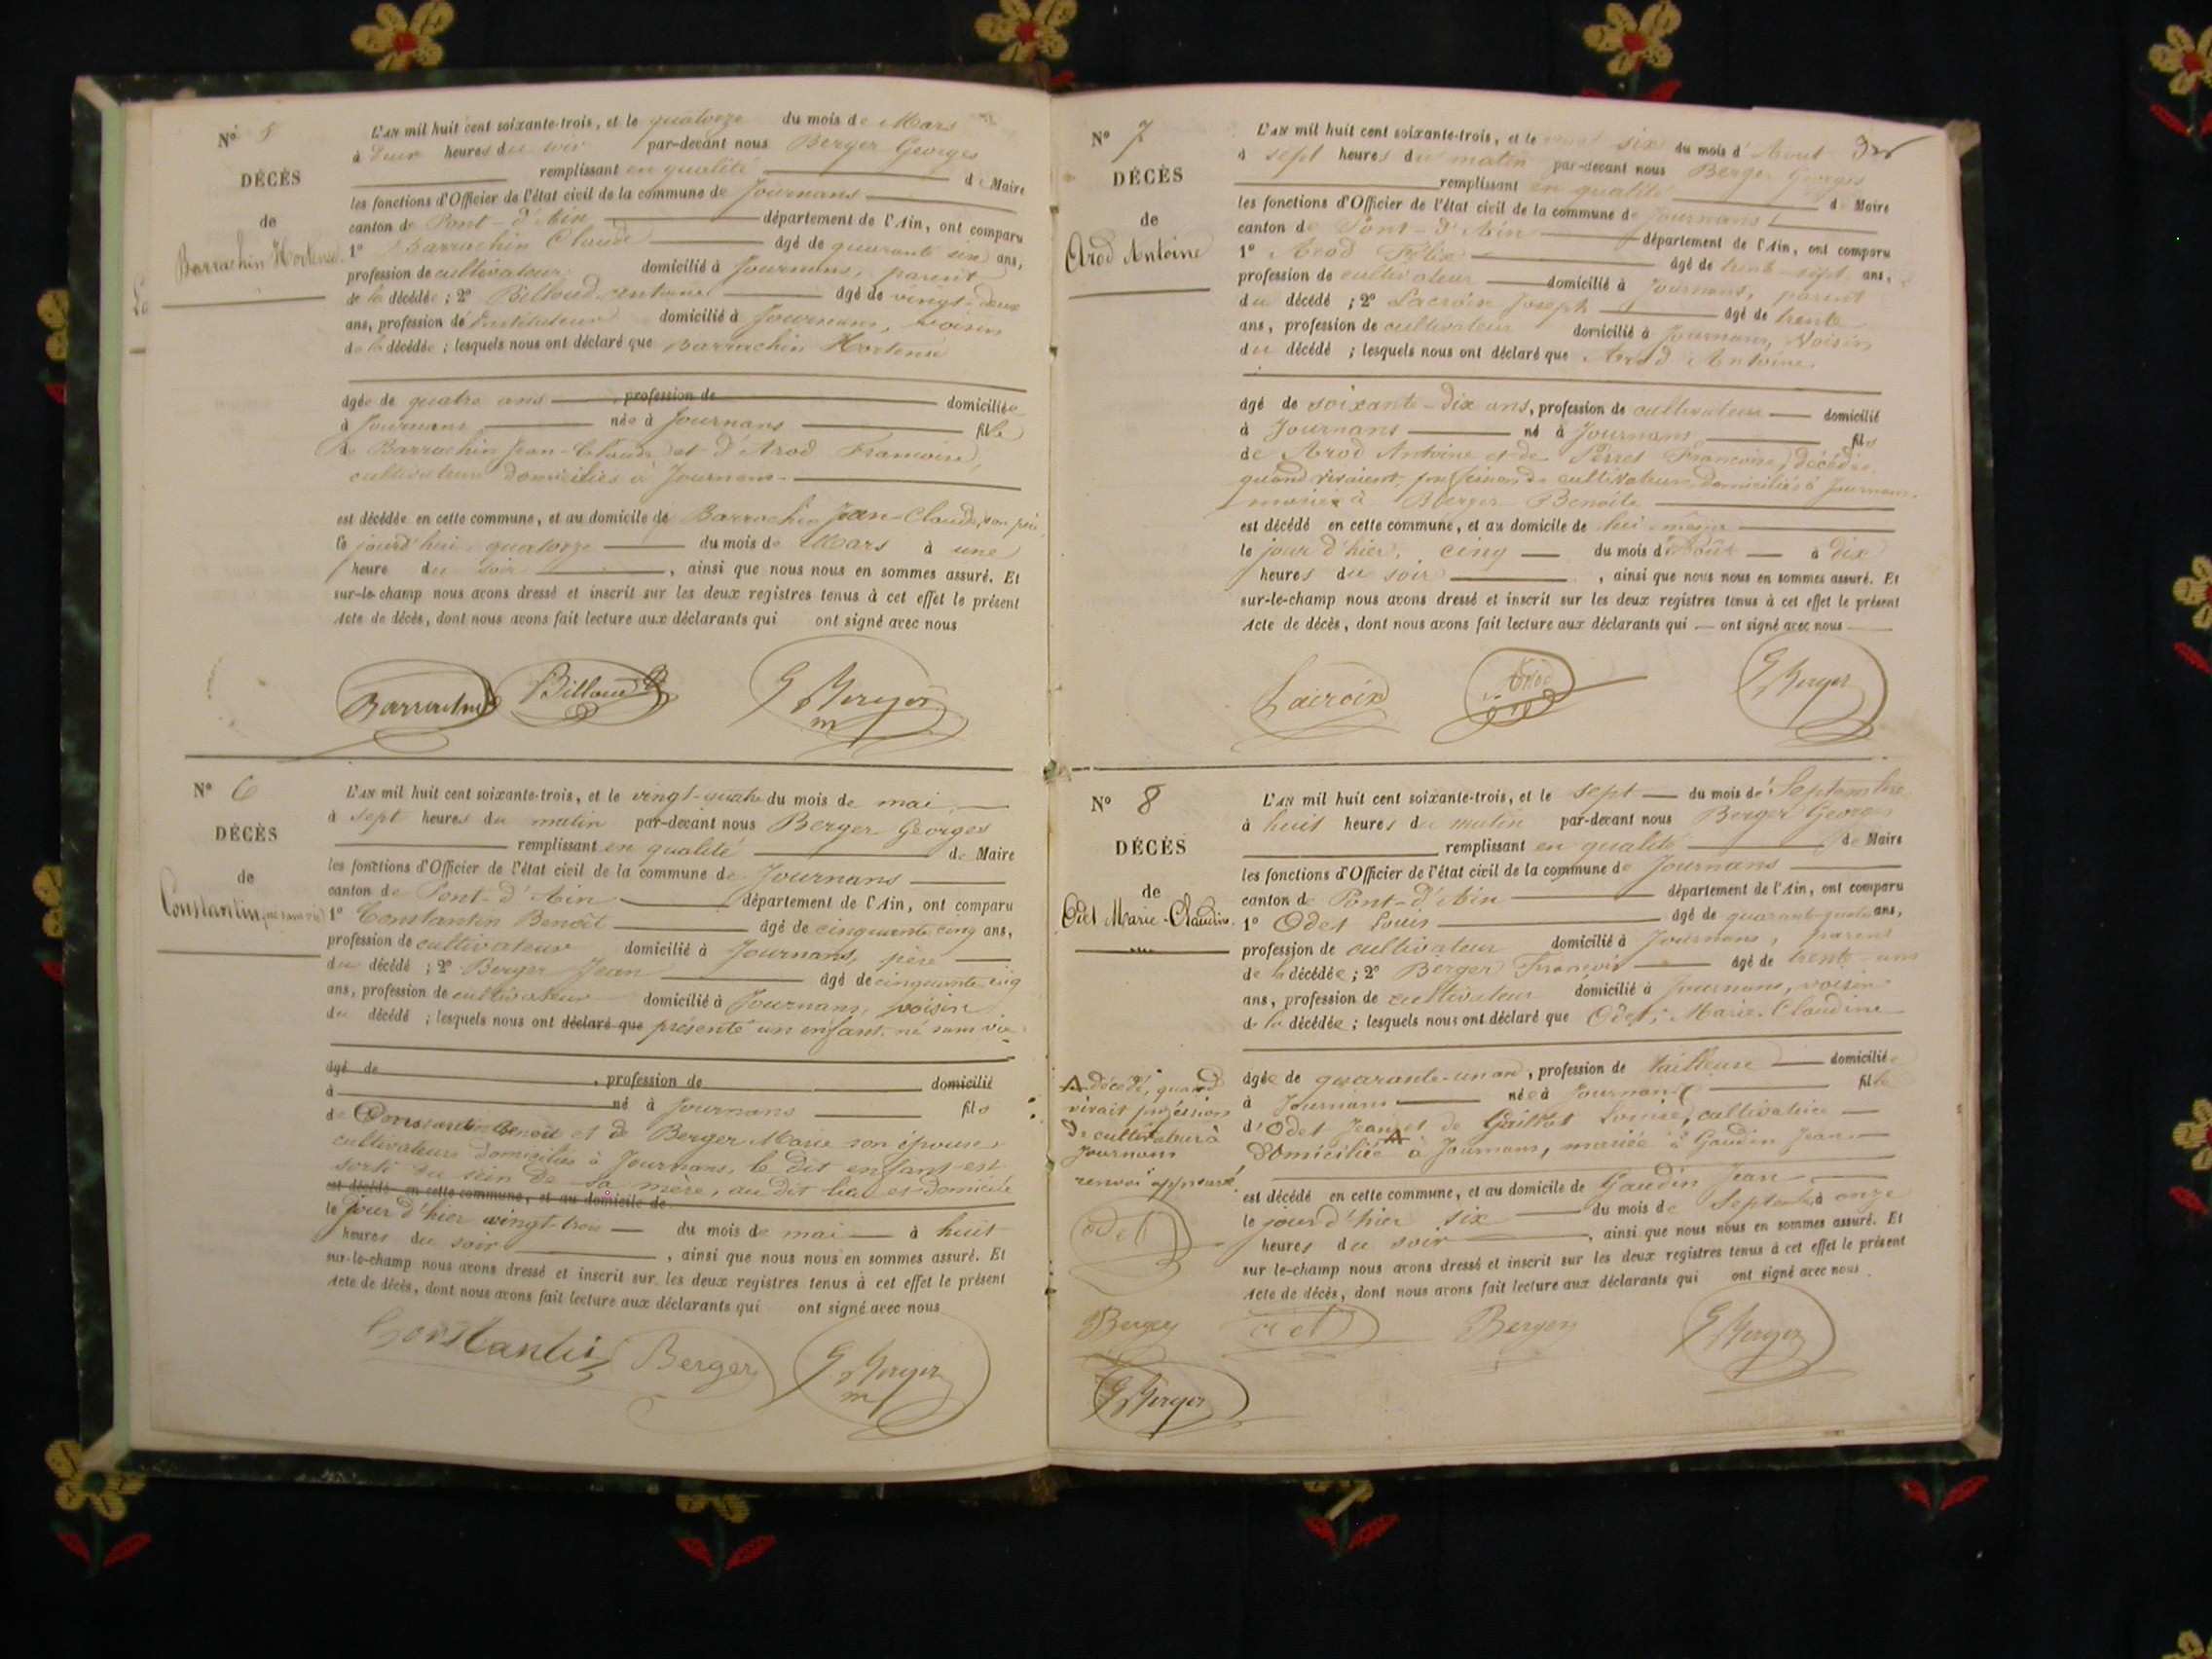 N° 5
DÉCÈS
de
Barrachin Hortense
L'AN mil huit cent soixante-trois, et le quatorze du mois de Mars
à Deux heures du soir par-devant nous Berger Georges
remplissant en qualité de Maire
les fonctions d'Officier de l'état civil de la commune de Journans
canton de Pont-d'Ain département de l'Ain, ont comparu
1° Barrachin Claude âgé de quarante six ans,
profession de cultivateur domicilié à Journans, parent
de la décédée ; 2° Billoud Antoine âgé de vingt-deux
ans, profession de Instituteur domicilié à Journans, voisin
de la décédée ; lesquels nous ont déclaré que Barrachin Hortense
âgée de quatre ans profession de domiciliée
à Journans née à Journans fille
de Barrachin Jean-Claude et d'Arod Francoise,
cultivateurs domiciliés à Journans
est décédée en cette commune, et au domicile de Barrachin Jean-Claude, son père,
le jourd'hui quatorze du mois de Mars à une
heure du soir , ainsi que nous nous en sommes assuré. Et
sur-le-champ nous avons dressé et inscrit sur les deux registres tenus à cet effet le présent
Acte de décès, dont nous avons fait lecture aux déclarants qui ont signé avec nous
Barrachin Billoud G Berger
m
N° 6
DÉCÈS
de
Constantin (né sans vie)
L'AN mil huit cent soixante-trois, et le vingt-quatre du mois de mai
à sept heures du matin par-devant nous Berger Georges
remplissant en qualité de Maire
les fonctions d'Officier de l'état civil de la commune de Journans
canton de Pont-d'Ain département de l'Ain, ont comparu
1° Constantin Benoît âgé de cinquante cinq ans,
profession de cultivateur domicilié à Journans, père
du décédé ; 2° Berger Jean âgé de cinquante cinq
ans, profession de cultivateur domicilié à Journans, voisin
du décédé ; lesquels nous ont déclaré que présenté un enfant né sans vie
âgé de , profession de domicilié
à né à Journans fils
de Constantin Benoît et de Berger Marie son épouse
cultivateurs domiciliés à Journans, le dit enfant est
sorti du sein de sa mère, au dit lieu et domicile
est décédé en cette commune, et au domicile de
le jour d'hier vingt-trois du mois de mai à huit
heures du soir , ainsi que nous nous en sommes assuré. Et
sur-le-champ nous avons dressé et inscrit sur les deux registres tenus à cet effet le présent
Acte de décès, dont nous avons fait lecture aux déclarants qui ont signé avec nous
Constantin Berger G Berger
m
N° 7
DÉCÈS
de
Arod Antoine
L'AN mil huit cent soixante-trois, et le six du mois d'Aout
à sept heures du matin par-devant nous Berger Georges
remplissant en qualité de Maire
les fonctions d'Officier de l'état civil de la commune de Journans
canton de Pont-d'Ain département de l'Ain, ont comparu
1° Arod Félix âgé de trente-sept ans,
profession de cultivateur domicilié à Journans, parent
du décédé ; 2° Lacroix Joseph âgé de trente
ans, profession de cultivateur domicilié à Journans, Voisin
du décédé ; lesquels nous ont déclaré que Arod Antoine
âgé de soixante-dix ans, profession de cultivateur domicilié
à Journans né à Journans fils
de Arod Antoine et de Perret Francoise, décédés
quand vivaient de cultivateurs domiciliés à Journans
marié à Berger Benoîte
est décédé en cette commune, et au domicile de lui même
le jour d'hier, cinq du mois d'Août à Dix
heures du soir , ainsi que nous nous en sommes assuré. Et
sur-le-champ nous avons dressé et inscrit sur les deux registres tenus à cet effet le présent
Acte de décès, dont nous avons fait lecture aux déclarants qui ont signé avec nous
Lacroix Arod G Berger
N° 8
DÉCÈS
de
Odet Marie-Claudine
L'AN mil huit cent soixante-trois, et le sept du mois de Septembre
à huit heures du matin par-devant nous Berger Georges
remplissant en qualité de Maire
les fonctions d'Officier de l'état civil de la commune de Journans
canton de Pont-d'Ain département de l'Ain, ont comparu
1° Odet Louis âgé de quarante-quatre ans,
profession de cultivateur domicilié à Journans, parent
de la décédée ; 2° Berger François âgé de trente-un
ans, profession de cultivateur domicilié à Journans, voisin
de la décédée ; lesquels nous ont déclaré que Odet, Marie-Claudine
âgée de quarante-un ans, profession de tailleuse domiciliée
à Journans née à Journans fille
d'Odet Jean et de Gaillot Louise, cultivatrice
domiciliée à Journans, mariée à Gaudin Jean
est décédé en cette commune, et au domicile de Gaudin Jean
le jour d'hier six du mois de Septembre à onze
heures du soir , ainsi que nous nous en sommes assuré. Et
sur-le-champ nous avons dressé et inscrit sur les deux registres tenus à cet effet le présent
Acte de décès, dont nous avons fait lecture aux déclarants qui ont signé avec nous
décédé, quand
vivait profession
de cultivateur à
Journans
renvoi approuvé
odet
Berger odet Berger G Berger
G Berger